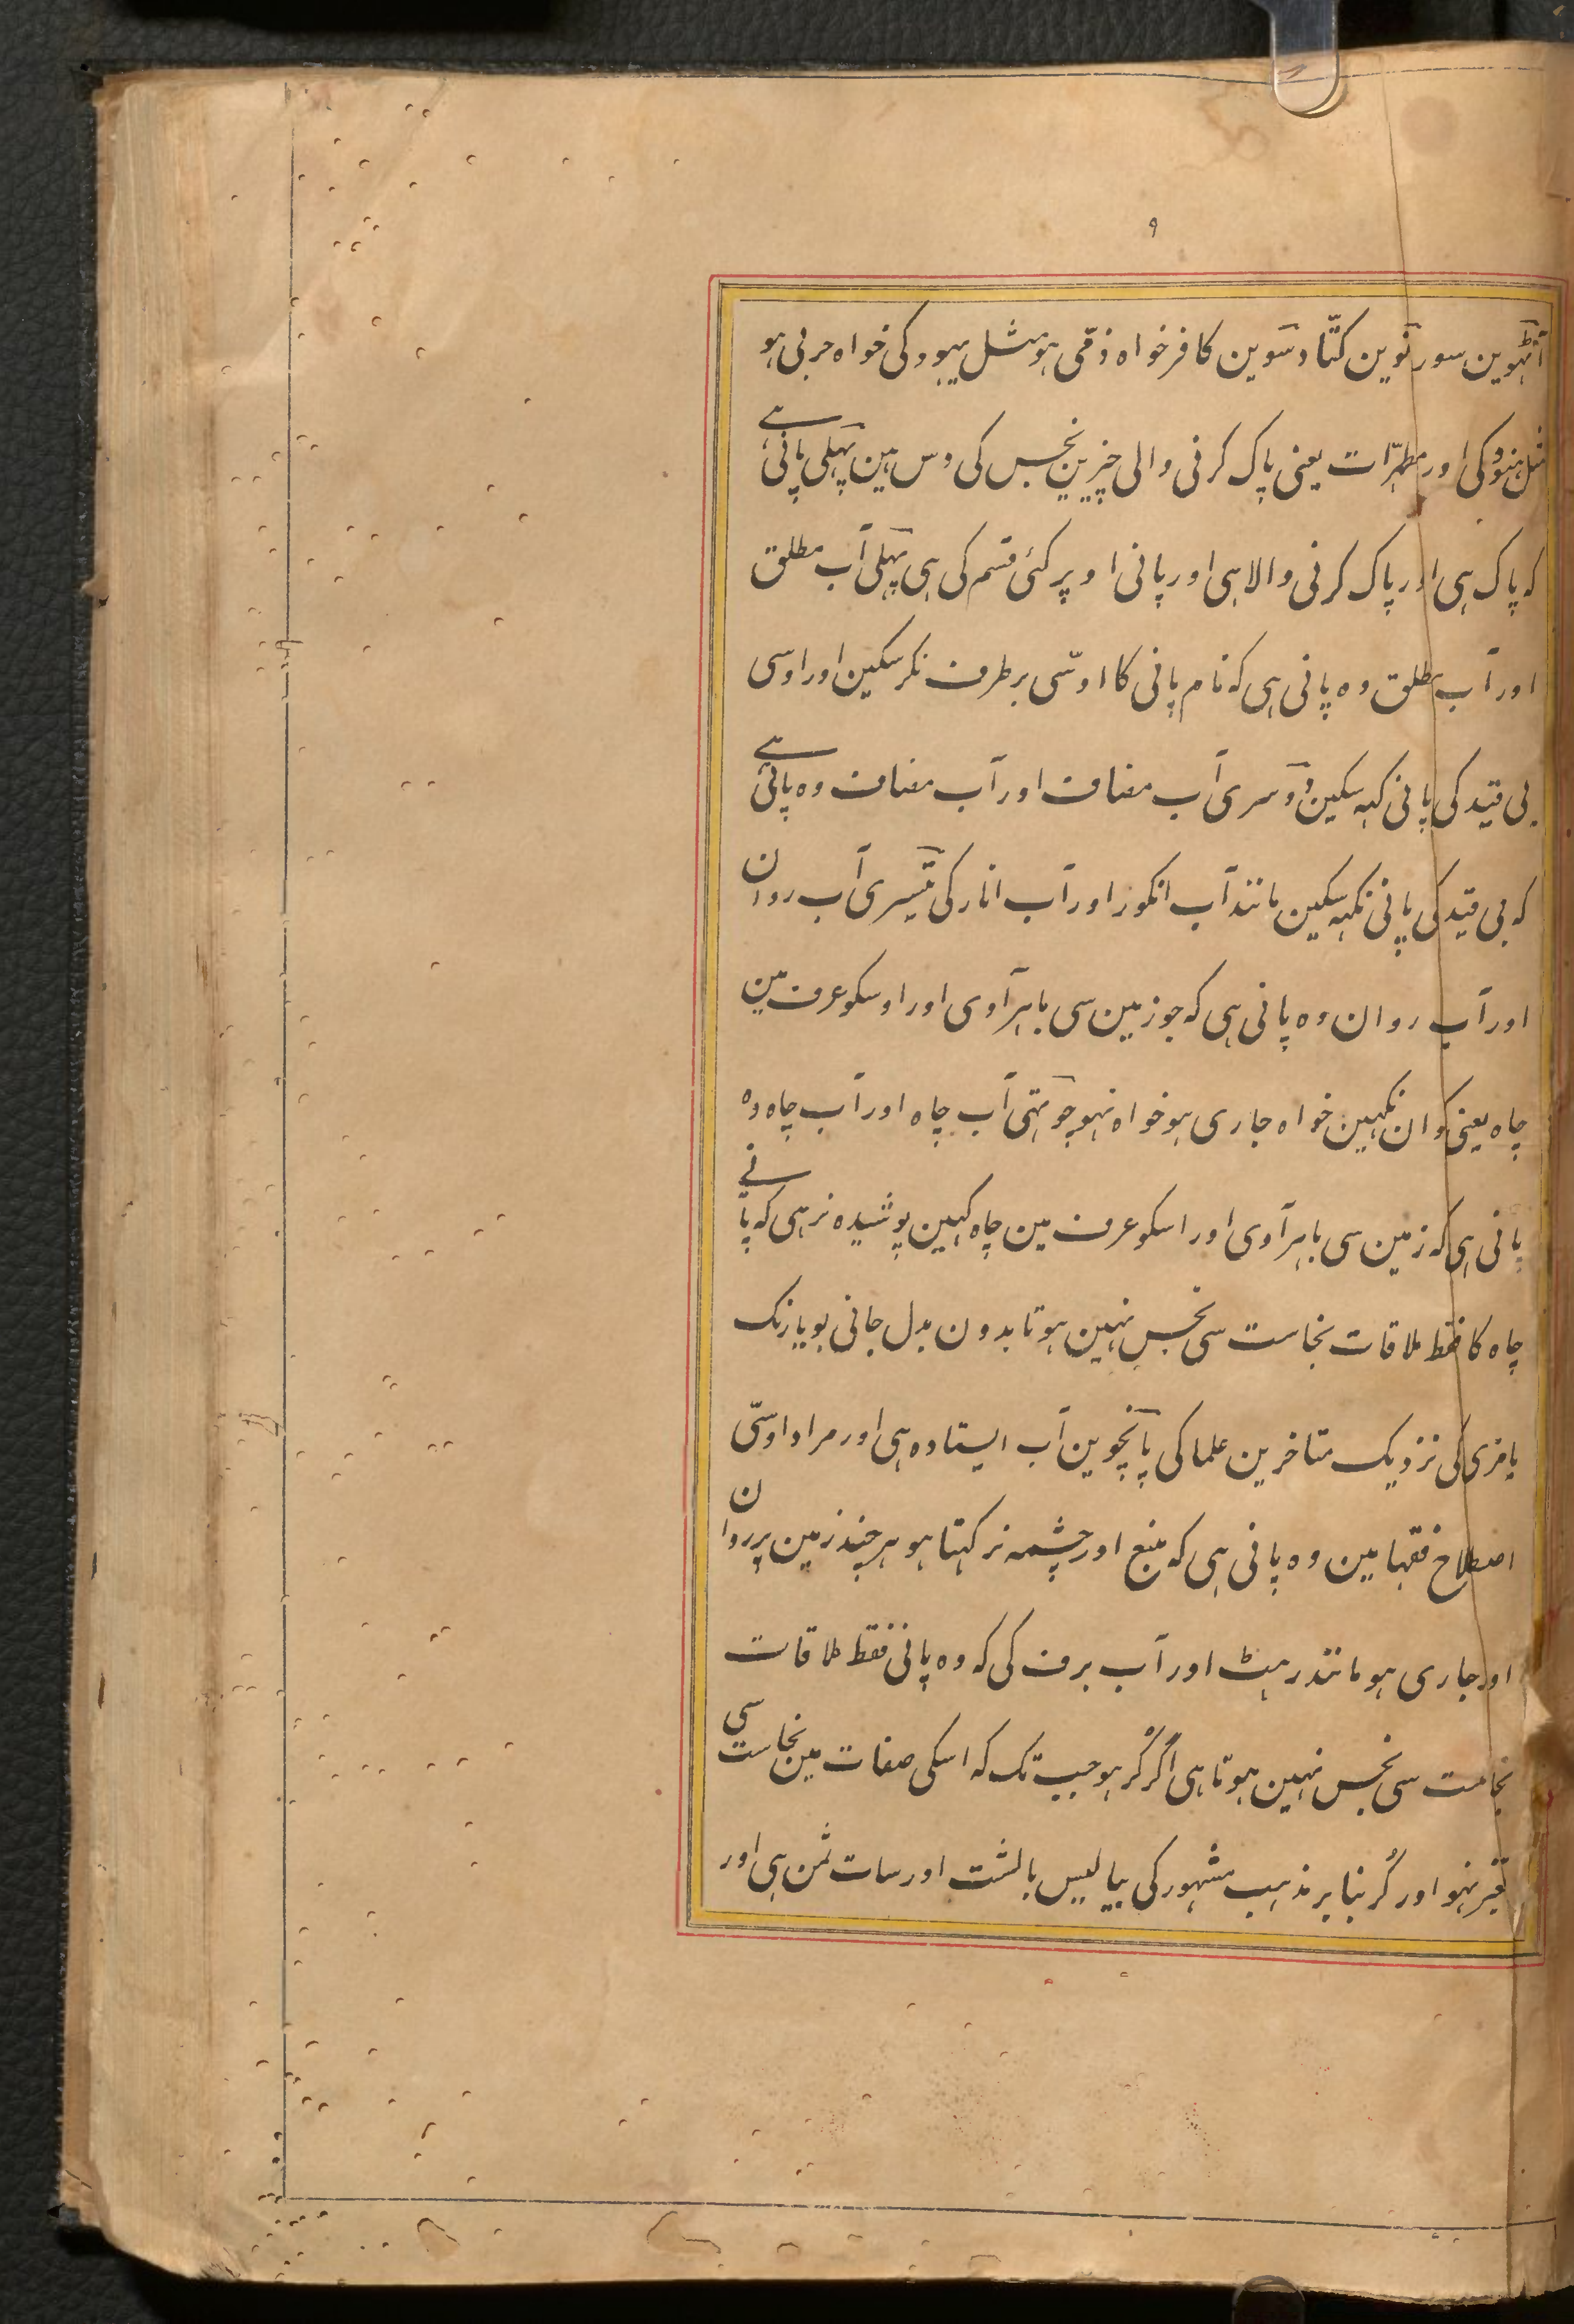 ۹
آٹھوین سور نوین کتّا دسوین کافر خواہ ذمّی ہو مثل یہود کی خواہ حربی ہو
مثل ہنود کی اور مطہرّات یعنی پاک کرنی والی چیزین نجس کی دس ہین پہلی پانی ہے
کہ پاک ہی اور پاک کرنی والا ہی اور پانی اوپر کئی قسم کی ہی پہلی آب مطلق
اور آب مطلق وہ پانی ہی کہ نام پانی کا اوسّی برطرف نکر سکین اور اوسی
بی قید کی پانی کہہ سکین دوسری آب مضاف اور آب مضاف وہ پانی ہے
کہ بی قید کی پانی نکہہ سکین مانند آب انکور اور آب انار کی تیسری آب روان
اور آب روان وہ پانی ہی کہ جو زمین سی باہر آوی اور اوسکو عرف مین
چاہ یعنی کوان نکہین خواہ جاری ہو خواہ نہو چوتہی آب چاہ اور آب چاہ وہ
پانی ہی کہ زمین سی باہر آوی اور اسکو عرف مین چاہ کہین پوشیدہ نرہی کہ پانے
چاہ کا فقط ملاقات نجاست سی نجس نہین ہوتا بدون بدل جانی بو یا رنک
یا مزی کی نزدیک متاخرین علما کی پانچوین آب ایستادہ ہی اور مراد اوسّی
اصطلاح فقہا مین وہ پانی ہی کہ منبع اور چشمہ نرکہتا ہو ہر چند زمین پر روان
اور جاری ہو مانند رہٹ اور آب برف کی کہ وہ پانی فقط ملاقات
نجاست سی نجس نہین ہوتا ہی اگر کُر ہو جب تک کہ اسکی صفات مین نجاست سی
تغیر نہو اور کُر بنا بر مذہب مشہور کی بیالیس بالشت اور سات ثمن ہی اور